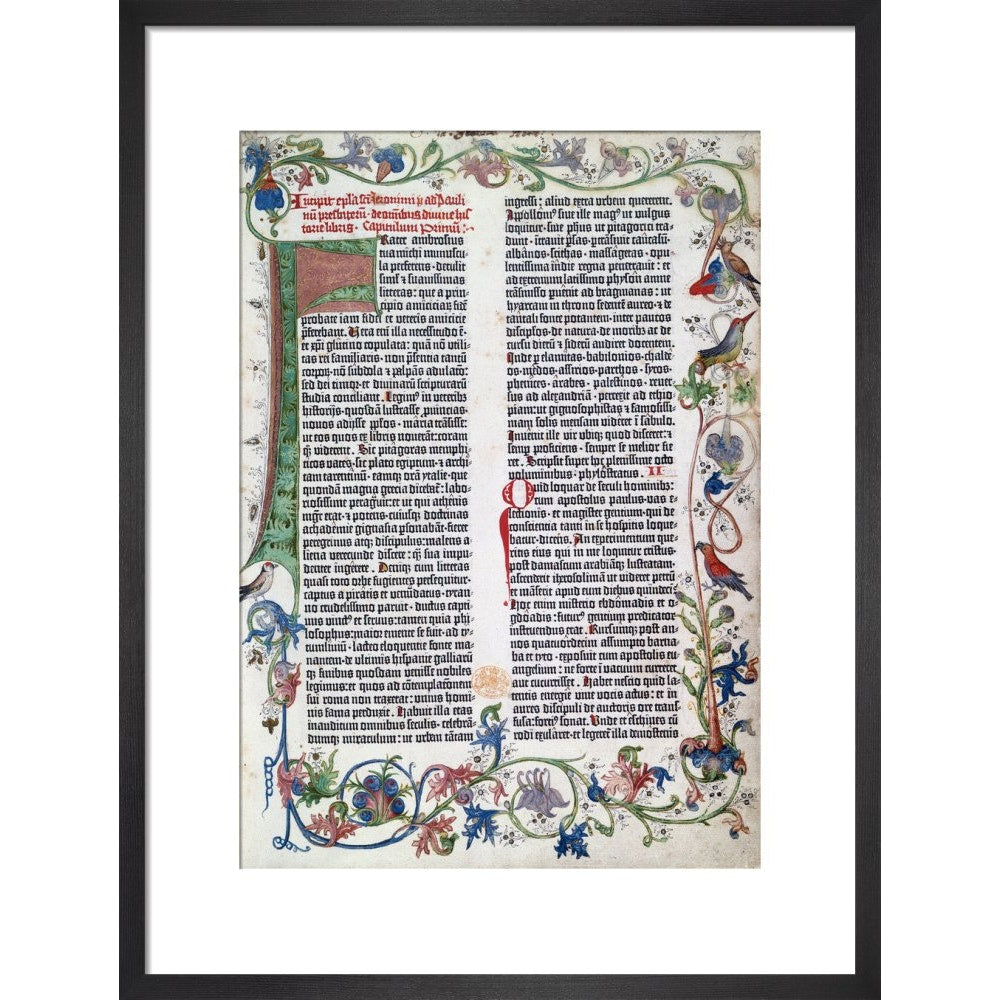 Incipit epła sancti Jeronimi ad Pauli
nū presbiterū · de omnibus diuine his
torie libris · Capitulum Primū :
Frater ambrosius
tua michi munuscu
la preferens · detulit
simł et suauissimas
litteras : que a prin
cipio amiciciarꝫ fidē
probate iam fidei et veteris amicicie
p̄ferebant . Vera enī illa necessitudo ē ·
et xp̄i glutino copulata : quā nō utili
tas rei familiaris · non p̄sentia tantū
corporꝫ · nō subdola et palpās adulatō :
sed dei timor · et diuinarū scripturarū
studia conciliant . Legimꝰ in veteribꝫ
historijs · quosdā lustrasse ꝓuincias ·
nouos adijsse pplos · maria trāsisse :
ut eos quos ex libris nouerāt : coram
qꝫ viderent . Sic pitagoras memphi
ticos vates · sic plato egiptum · et archi
tam tarentinū · eamqꝫ orā ytalie · que
quondā magna grecia dicebat̄ : labo ·
riosissime peragrauit : et ut qui athenis
mgr̄ erat · et potens · cuiusqꝫ doctrinas
achademie gignasia p̄sonabāt · fieret
peregrinus atqꝫ discipulus : malens a
liena verecunde discere : qꝫ sua impu
denter ingerere . Deniqꝫ cum litteras
quasi toto orbe fugientes persequitur ·
captus a piratis et venūdatus · tyran
no crudelissimo paruit · ductus capti
uus vinctꝰ et seruus : tamen quia phi
losophus : maior emente se fuit · ad ty
tumliuiū · lacteo eloquentie fonte ma
nantem · de ultimis hispanie galliarū
qꝫ finibus quosdam venisse nobiles
legimus : et quos ad cōtemplatōnem
sui roma non traxerat : unius homi
nis fama perduxit . Habuit illa etas
inauditum omnibus seculis · celebrā
dumqꝫ miraculum : ut urbem tantam
ingressi : aliud extra urbem quererent .
Appollonꝰ siue ille magꝰ ut vulgus
loquitur · siue phūs ut pitagorici tra
dunt · itrauit p̄sas · ptrāsiuit caucasū ·
albānos · scithas · massagetas · opu
lentissima indie regna penetrauit : et
ad extremum latissimo physon amne
trāsmisso puenit ad bragmanas : ut
hyarcam in throno sedentē aureo · et de
tantali fonte potantem · inter paucos
discipłos · de natura · de moribꝫ ac de
cursu dierū et siderū audiret docentem .
Inde p elamitas · babilonios · chalde
os · medos · assirios · parthos · syros ·
phenices · arabes · palestinos · reuer
sus ad alexandriā · perrexit ad ethio
piam : ut gignosophistas et famosissi
mam solis mensam videret ī sabulo .
Inuenit ille vir ubiqꝫ quod disceret : et
semp proficiens · semper se melior fie
ret . Scripsit super hoc plenissime octo
voluminibus · phylostratus . II
Quid loquar de seculi hominibꝫ :
cum apostolus paulus · vas e ·
lectionis · et magister gentium · qui de
conscientia tanti in se hospitis loque
batur · dicens . An experimentum que
ritis eius qui in me loquitur cristus ·
post damascum arabiāqꝫ lustratam ·
ascenderit iherosolimā ut videret petrū
et māserit apud eum diebus quindeci .
Hoc enim misterio ebdomadis et o
gdoadis : futurꝰ gentium predicator
instruendus erat . Rursumqꝫ post an
nos quatuordecim assumpto barna
ba et tyto · exposuit cum apostolis eu
angelium : ne forte ī vacuum curreret
aut cucurrisset . Habet nescio quid la ·
tentis energie viue vocis actus : et in
aures discipuli de auctoris ore trans
fusa · fortiꝰ sonat . Unde et eschines cū
rodi exularet · et legeret̄ illa demostenis